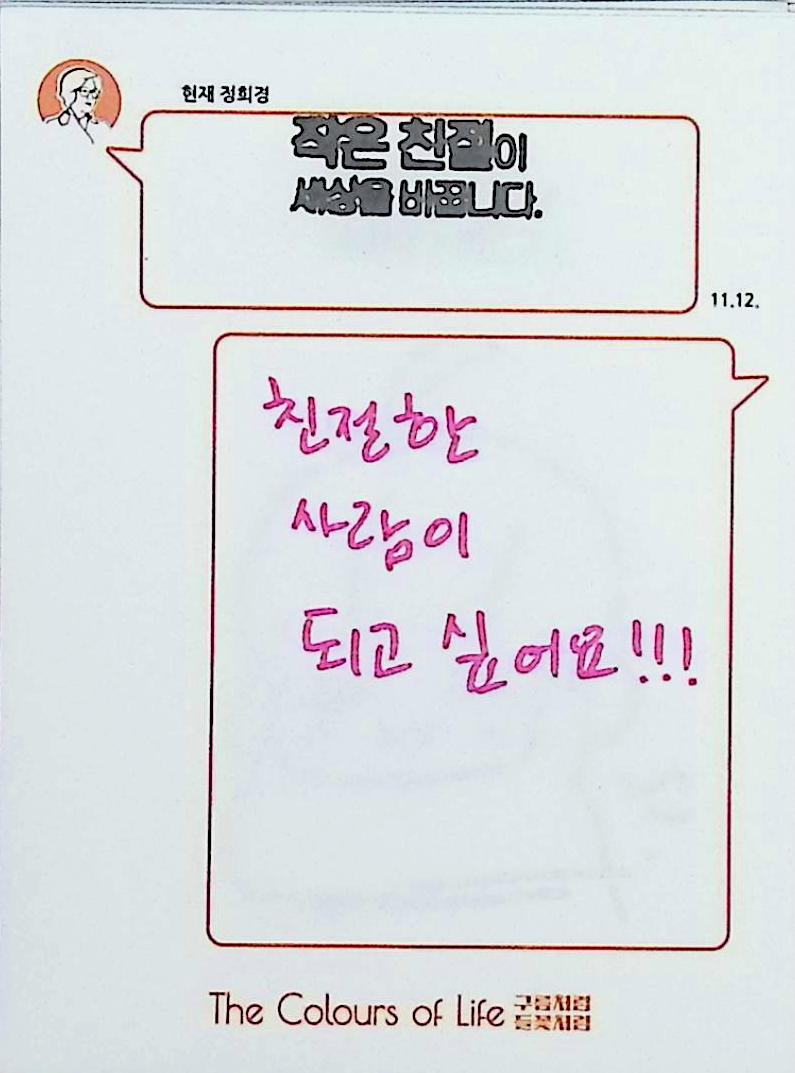 현재 정희경
작은 친절이
세상을 바꿉니다.
11.12.
친절한
사람이
되고 싶어요!!!
The Colours of Life 구름처럼
들꽃처럼